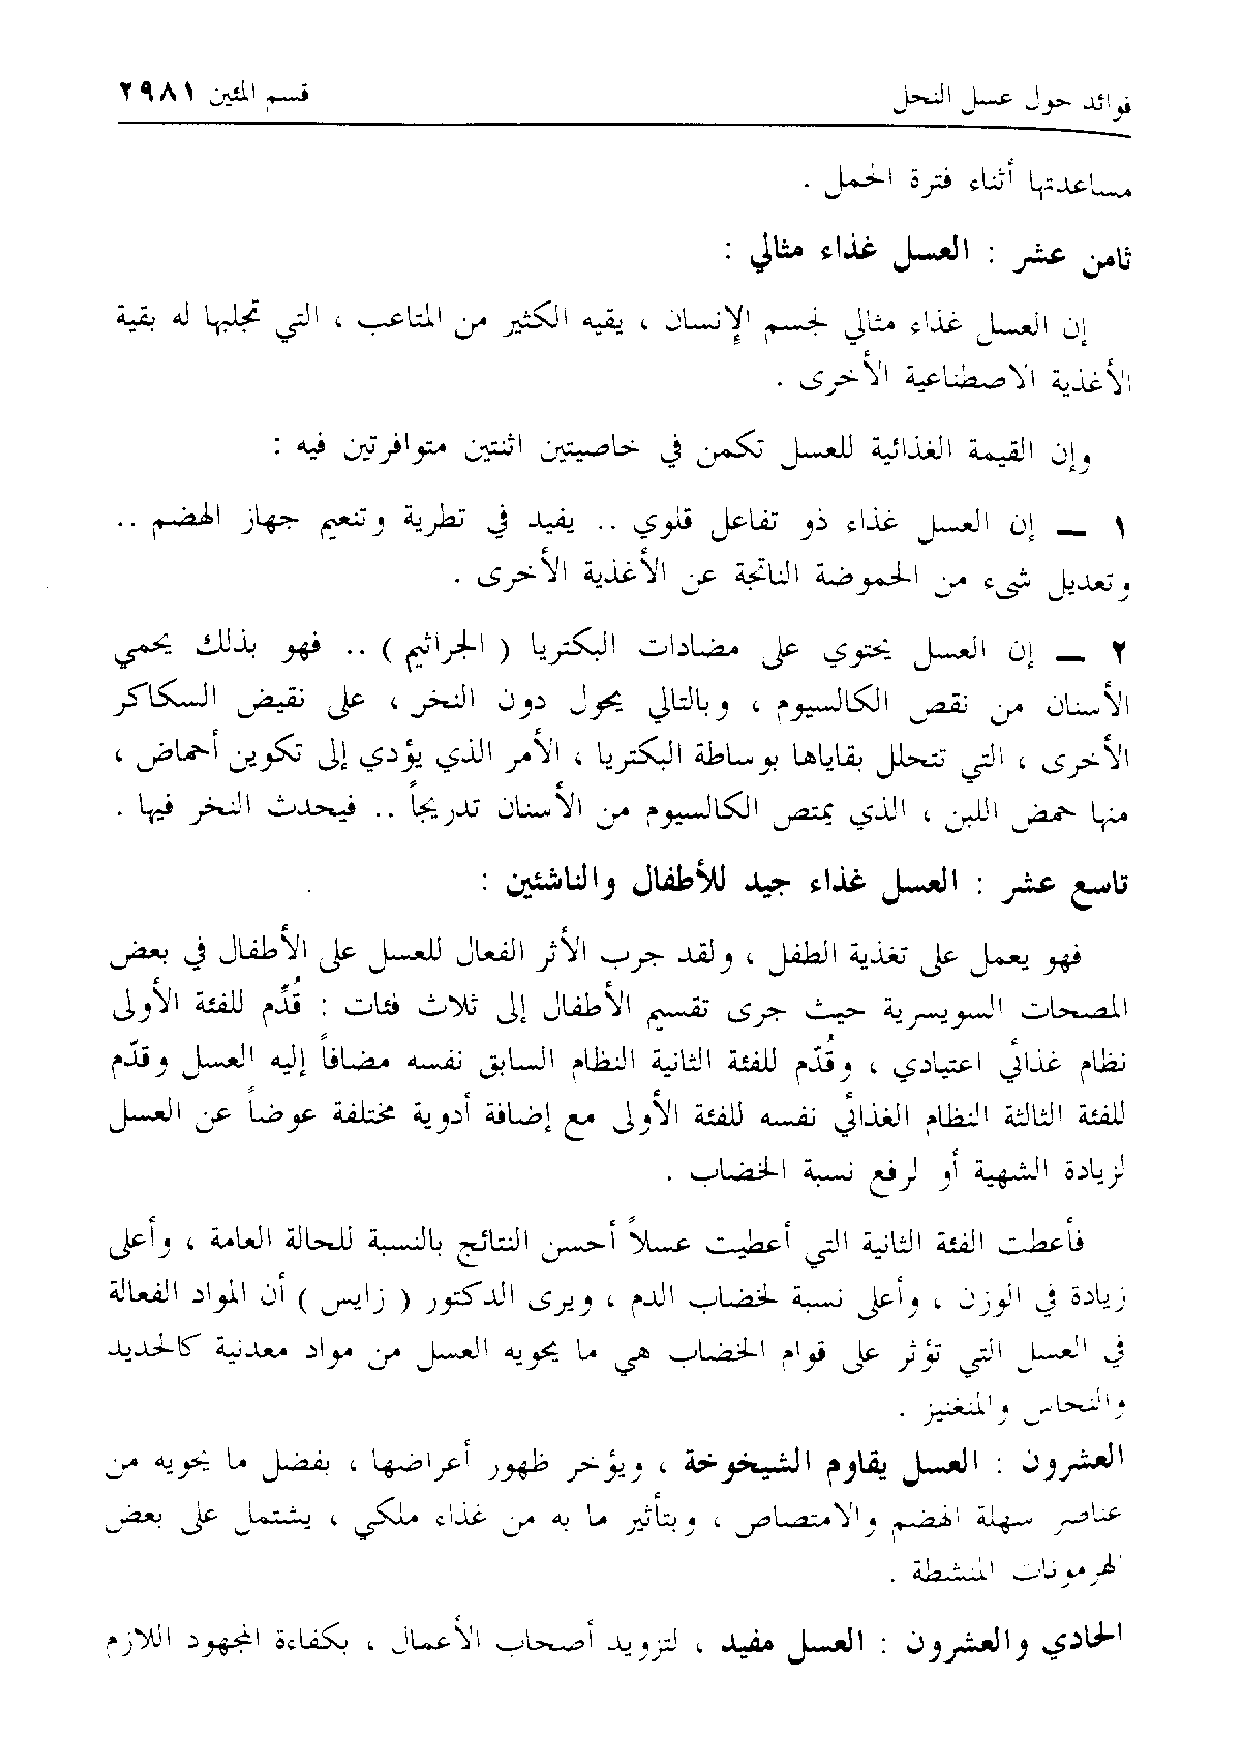 فوائد حول عسل النحل
قسم المئين ٢٩٨١
مساعدتها أثناء فترة الحمل .
ثامن عشر : العسل غذاء مثالي :
إن العسل غذاء مثالي لجسم الإنسان ، يقيه الكثير من المتاعب ، التي تجلبها له بقية
الأغذية الاصطناعية الأخرى .
وإن القيمة الغذائية للعسل تكمن في خاصيتين اثنتين متوافرتين فيه :
١ — إن العسل غذاء ذو تفاعل قلوي .. يفيد في تطرية وتنعيم جهاز الهضم ..
وتعديل شيء من الحموضة الناتجة عن الأغذية الأخرى .
٢ — إن العسل يحتوي على مضادات البكتريا ( الجراثيم ) .. فهو بذلك يحمي
الأسنان من نقص الكالسيوم ، وبالتالي يحول دون النخر ، على نقيض السكاكر
الأخرى ، التي تتحلل بقاياها بوساطة البكتريا ، الأمر الذي يؤدي إلى تكوين أحماض ،
منها حمض اللبن ، الذي يمتص الكالسيوم من الأسنان تدريجاً .. فيحدث النخر فيها .
تاسع عشر : العسل غذاء جيد للأطفال والناشئين :
فهو يعمل على تغذية الطفل ، ولقد جرب الأثر الفعال للعسل على الأطفال في بعض
المصحات السويسرية حيث جرى تقسيم الأطفال إلى ثلاث فئات : قُدِّم للفئة الأولى
نظام غذائي اعتيادي ، وقُدّم للفئة الثانية النظام السابق نفسه مضافاً إليه العسل وقدّم
للفئة الثالثة النظام الغذائي نفسه للفئة الأولى مع إضافة أدوية مختلفة عوضاً عن العسل
لزيادة الشهية أو لرفع نسبة الخضاب .
فأعطت الفئة الثانية التي أعطيت عسلاً أحسن النتائج بالنسبة للحالة العامة ، وأعلى
زيادة في الوزن ، وأعلى نسبة لخضاب الدم ، ويرى الدكتور ( زايس ) أن المواد الفعالة
في العسل التي تؤثر على قوام الخضاب هي ما يحويه العسل من مواد معدنية كالحديد
والنحاس والمنغنيز .
العشرون : العسل يقاوم الشيخوخة ، ويؤخر ظهور أعراضها ، بفضل ما يحويه من
عناصر سهلة الهضم والامتصاص ، وبتأثير ما به من غذاء ملكي ، يشتمل على بعض
الهرمونات المنشطة .
الحادي والعشرون : العسل مفيد ، لتزويد أصحاب الأعمال ، بكفاءة المجهود اللازم